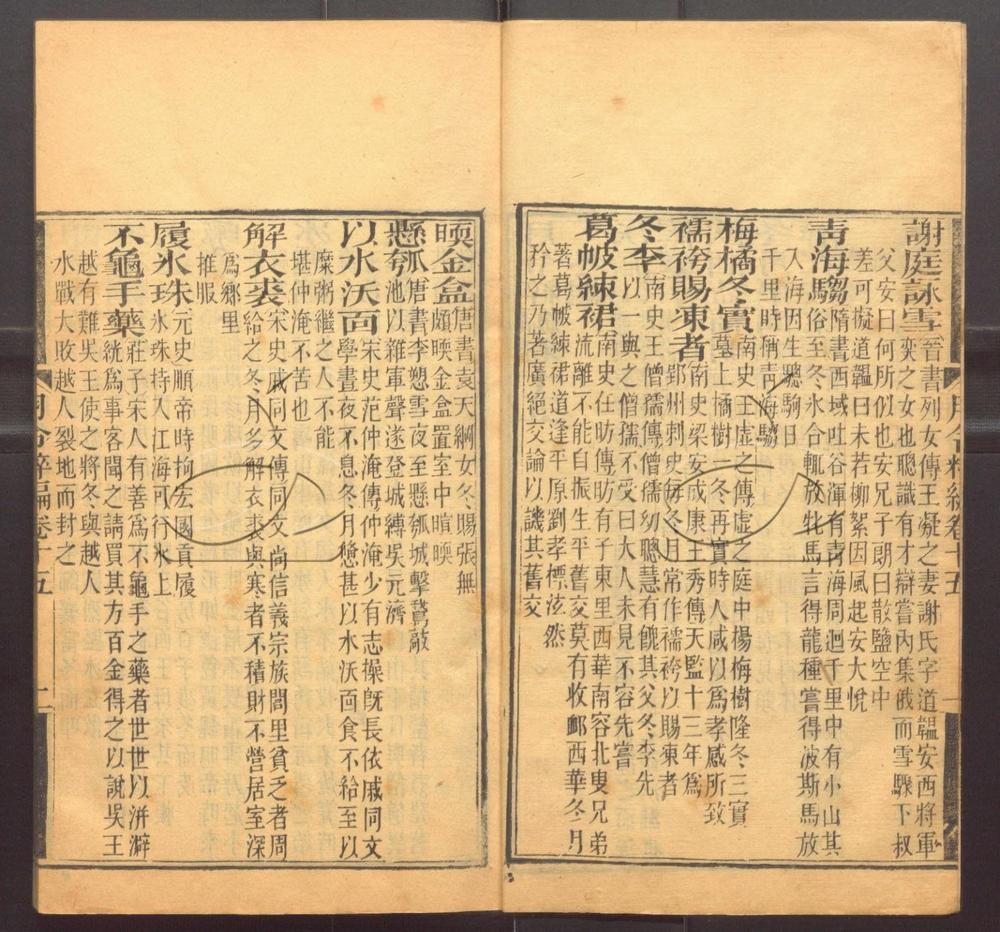 謝庭詠雪晉書列女傳王凝之妻謝氏字道韞安西將軍
奕之女也聰識有才辯嘗內集俄而雪驟下叔
父安曰何所似也安兄子朗曰散鹽空中
差可擬道韞曰未若柳絮因風起安大悅
青海騶隋書西域吐谷渾有青海周迴千里中有小山其
俗至冬氷合輒放牝馬言得龍種嘗得波斯馬放
入海因生驄駒日
千里時稱青海騶
梅橘冬實南史王虛之傳虛之庭中楊梅樹隆冬三實
墓上橘樹一冬再實時人咸以爲孝感所致
襦袴賜凍者南史梁安成康王秀傳天監十三年爲
郢州刺史每冬月常作襦袴以賜凍者
冬李南史王僧孺傳僧孺幼聰慧有餽其父冬李先
以一與之僧孺不受曰大人未見不容先嘗
葛帔練裙南史任昉傳昉有子東里西華南容北叟兄弟
流離不能自振生平舊交莫有收卹西華冬月
著葛帔練裙道逢平原劉孝標泫然
矜之乃著廣絕交論以譏其舊交
月令粹編卷十五
暝金盒唐書袁天綱女冬賜張無
頗暝金盒置室中暄暝
懸瓠池唐書李愬雪夜至懸瓠城擊鵞
以雜軍聲遂登城縛吳元濟
以水沃面宋史范仲淹傳仲淹少有志操旣長依戚同文
學晝夜不息冬月憊甚以水沃面食不給至以
糜粥繼之人不能
堪仲淹不苦也
解衣裘宋史戚同文傳同文尚信義宗族閭里貧乏者周
給之冬月多解衣裘與寒者不積財不營居室深
爲鄉里
推服
履氷珠元史順帝時拘宏國貢履
氷珠持入江海可行氷上
不龜手藥莊子宋人有善爲不龜手之藥者世世以洴澼
絖爲事客聞之請買其方百金得之以說吳王
越有難吳王使之將冬與越人
水戰大敗越人裂地而封之
月令粹編卷十五